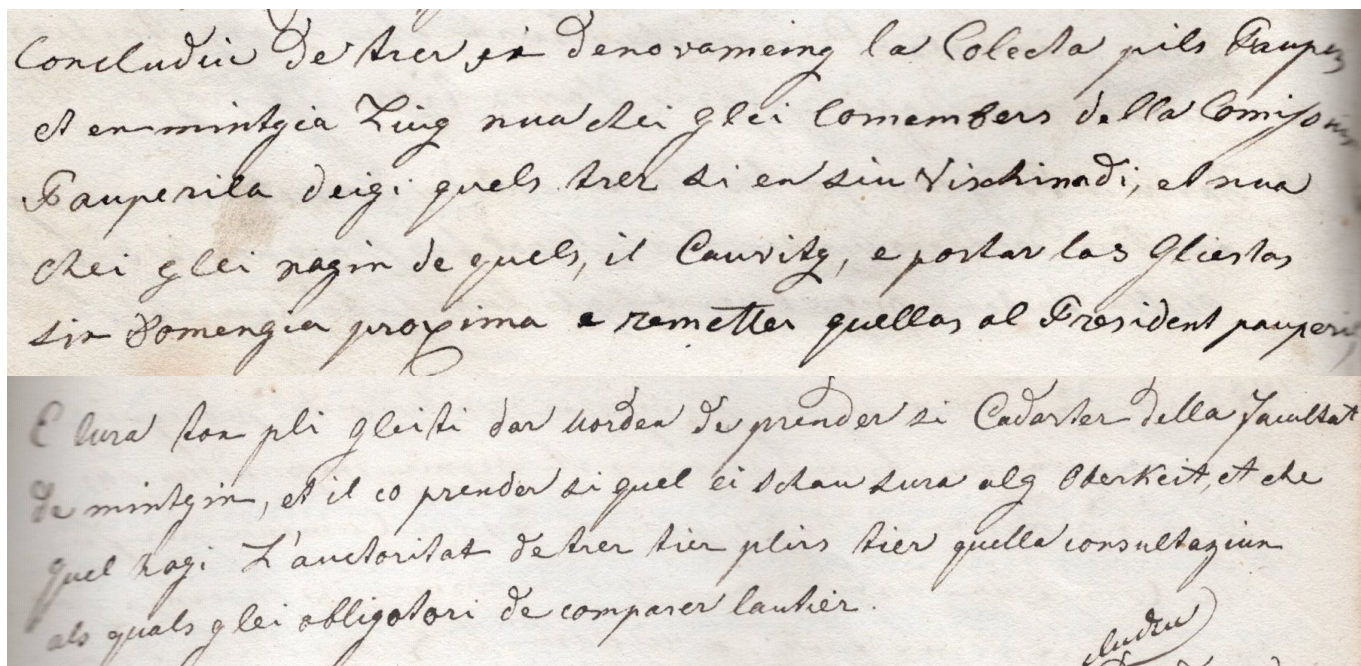 Concludiu de trer en denovameing la Colecta pils Paupers
et en mintgia Liug nua chei glei Comembers della Comissiun
Pauperila deigi quels trer si en siu Vischinadi, et nua
chei glei nagin de quels, il Cauvitg, e portar las Gliestas
sin Domengia proxima e remetter quellas al President pauperil,
E lura ton pli gleiti dar uorden de prender si Cadaster della facultat
de mintgin, et il co prender si quel ei schau sura alg Oberkeit, et che
quel hagi L'auctoritat de trer tier plirs tier quella consultaziun
als quals glei obligatori de comparer lautier.